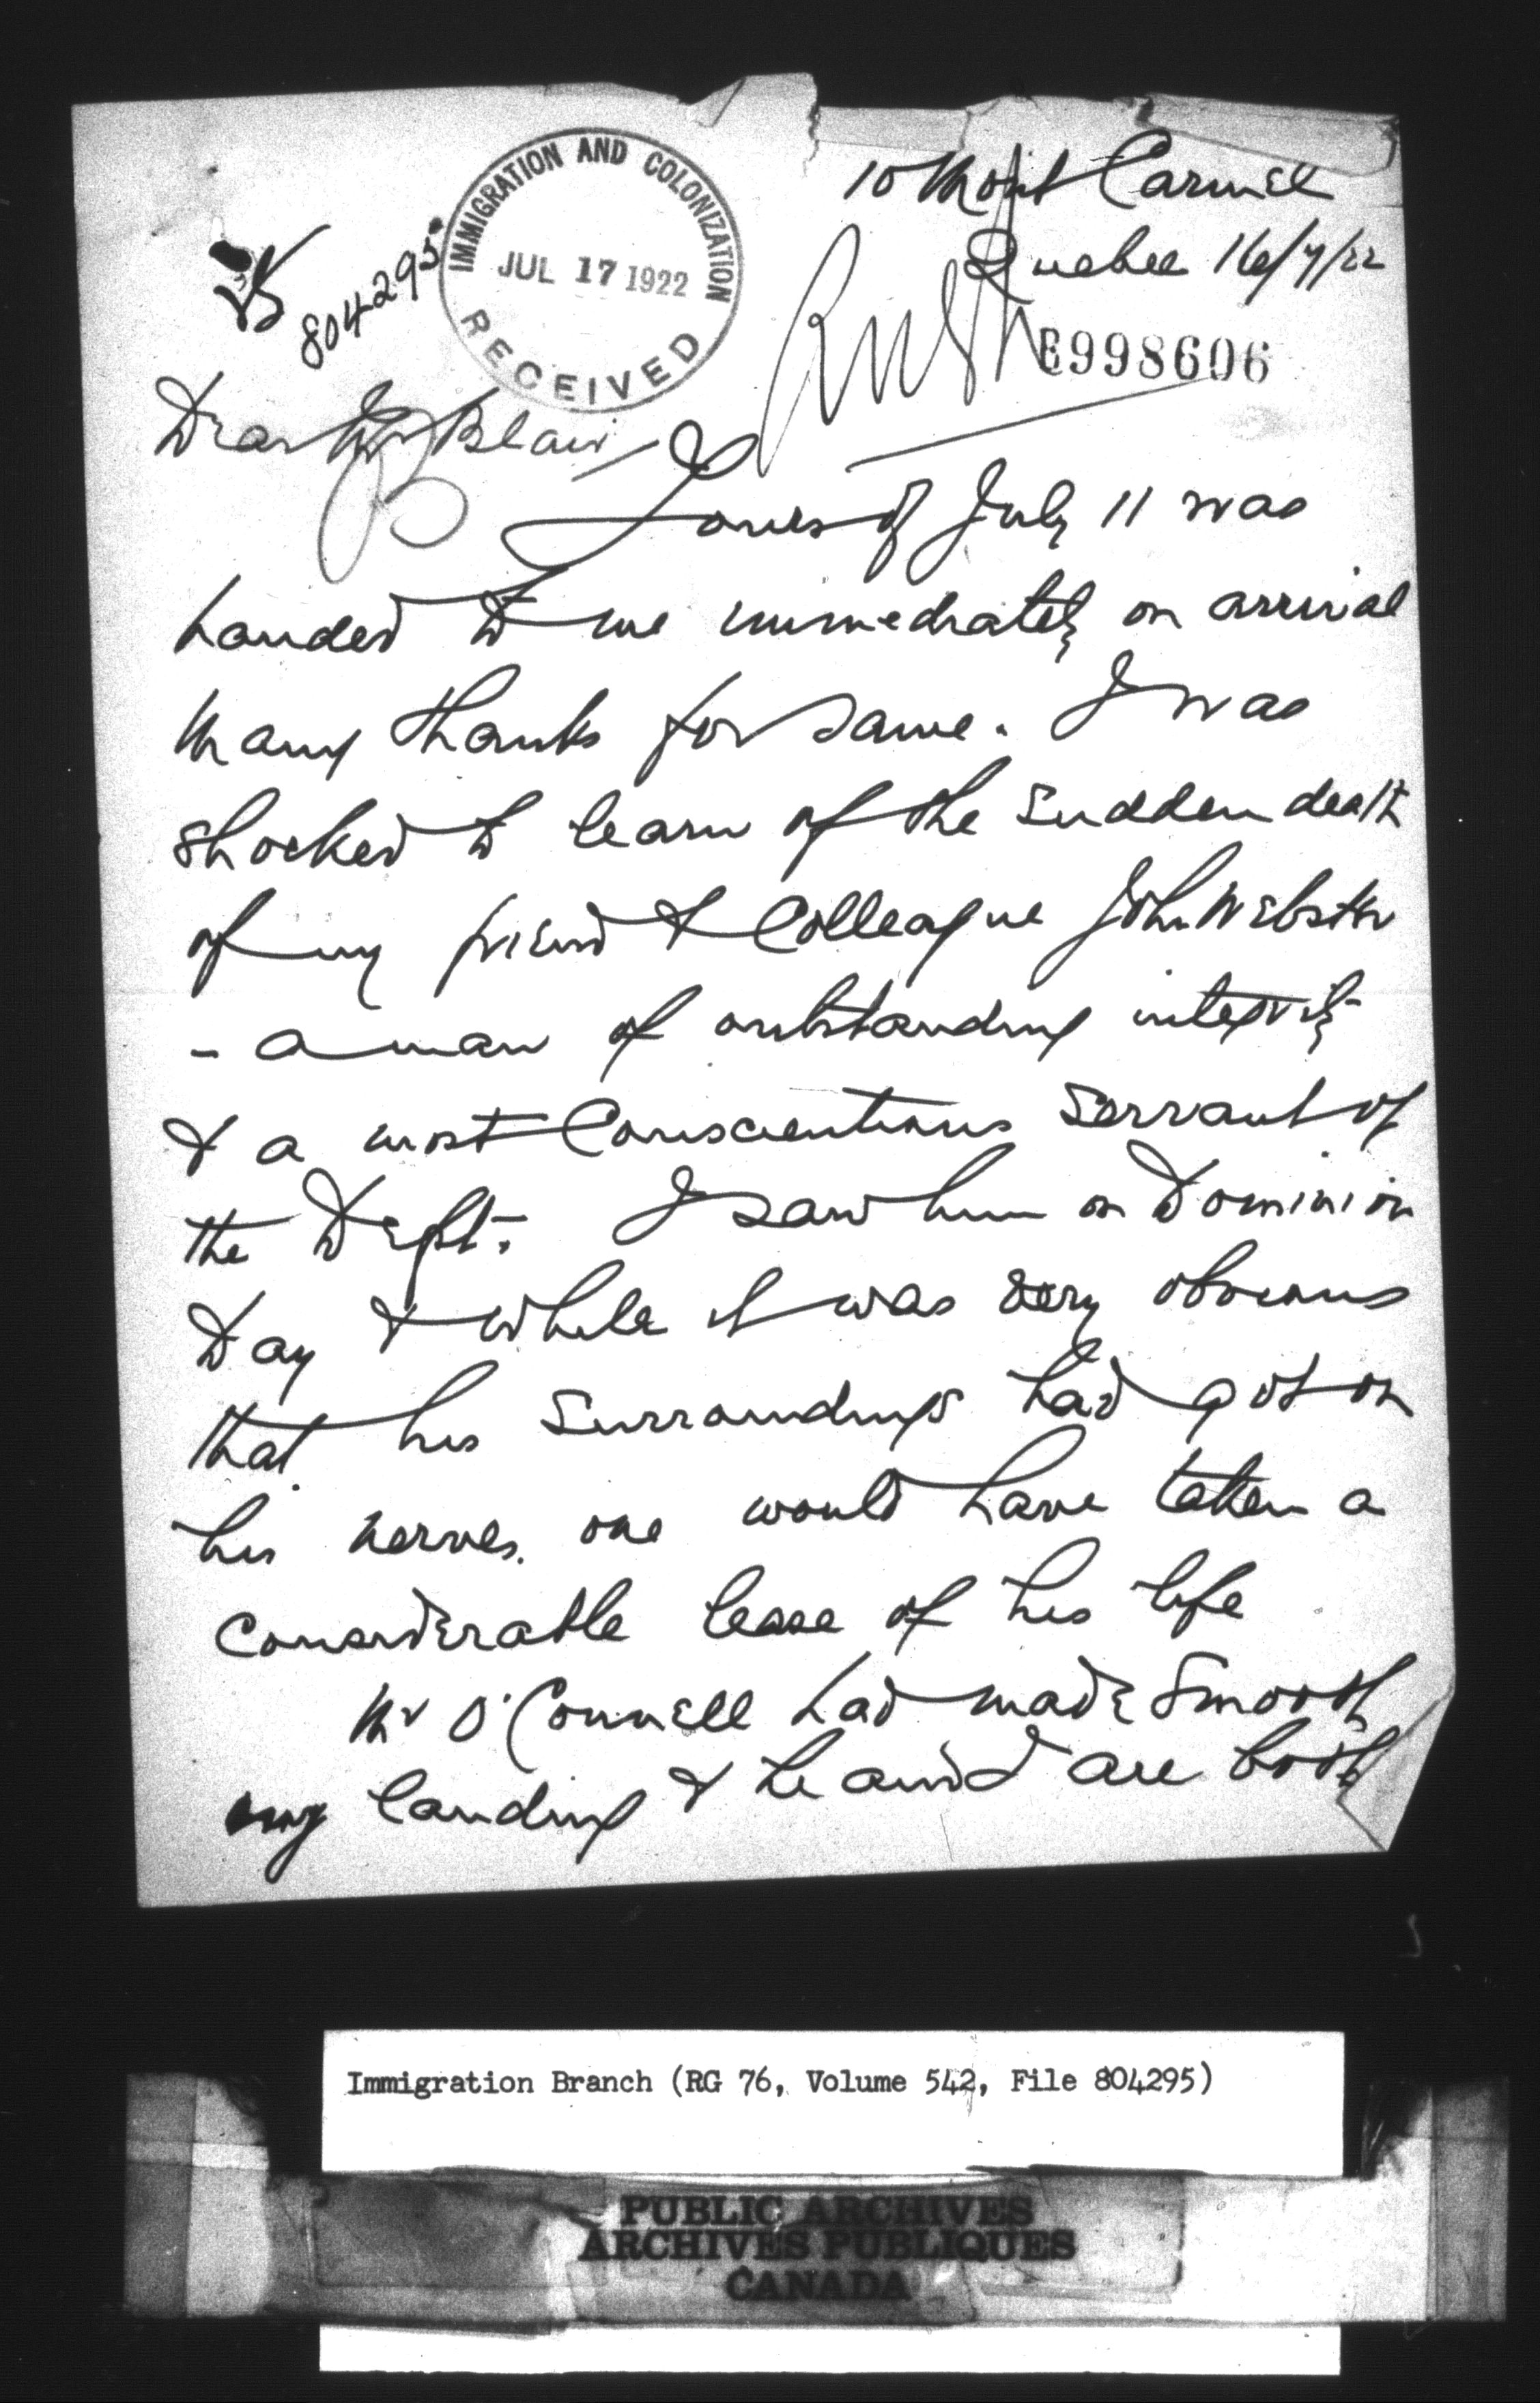 10 Mont Carmel
Quebec 16/7/22
IMMIGRATION AND COLONIZATION
JUL 17 1922
RECEIVED
804295
Rush
E998606
Dear Mr Blair
Yours of July 11 was
handed to me immediately on arrival
Many thanks for same. I was
shocked to learn of the sudden death
of my friend & Colleague John Webster
- a man of outstanding integrity
& a most Conscientious Servant of
the Dept. I saw him on Dominion
Day & while it was very obvious
that his Surroundings had got on
his nerves. one would have taken a
considerable lease of his life
Mr O'Connell had made smooth
my landing & he and I are both
Immigration Branch (RG 76, Volume 542, File 804295)
PUBLIC ARCHIVES
ARCHIVES PUBLIQUES
CANADA